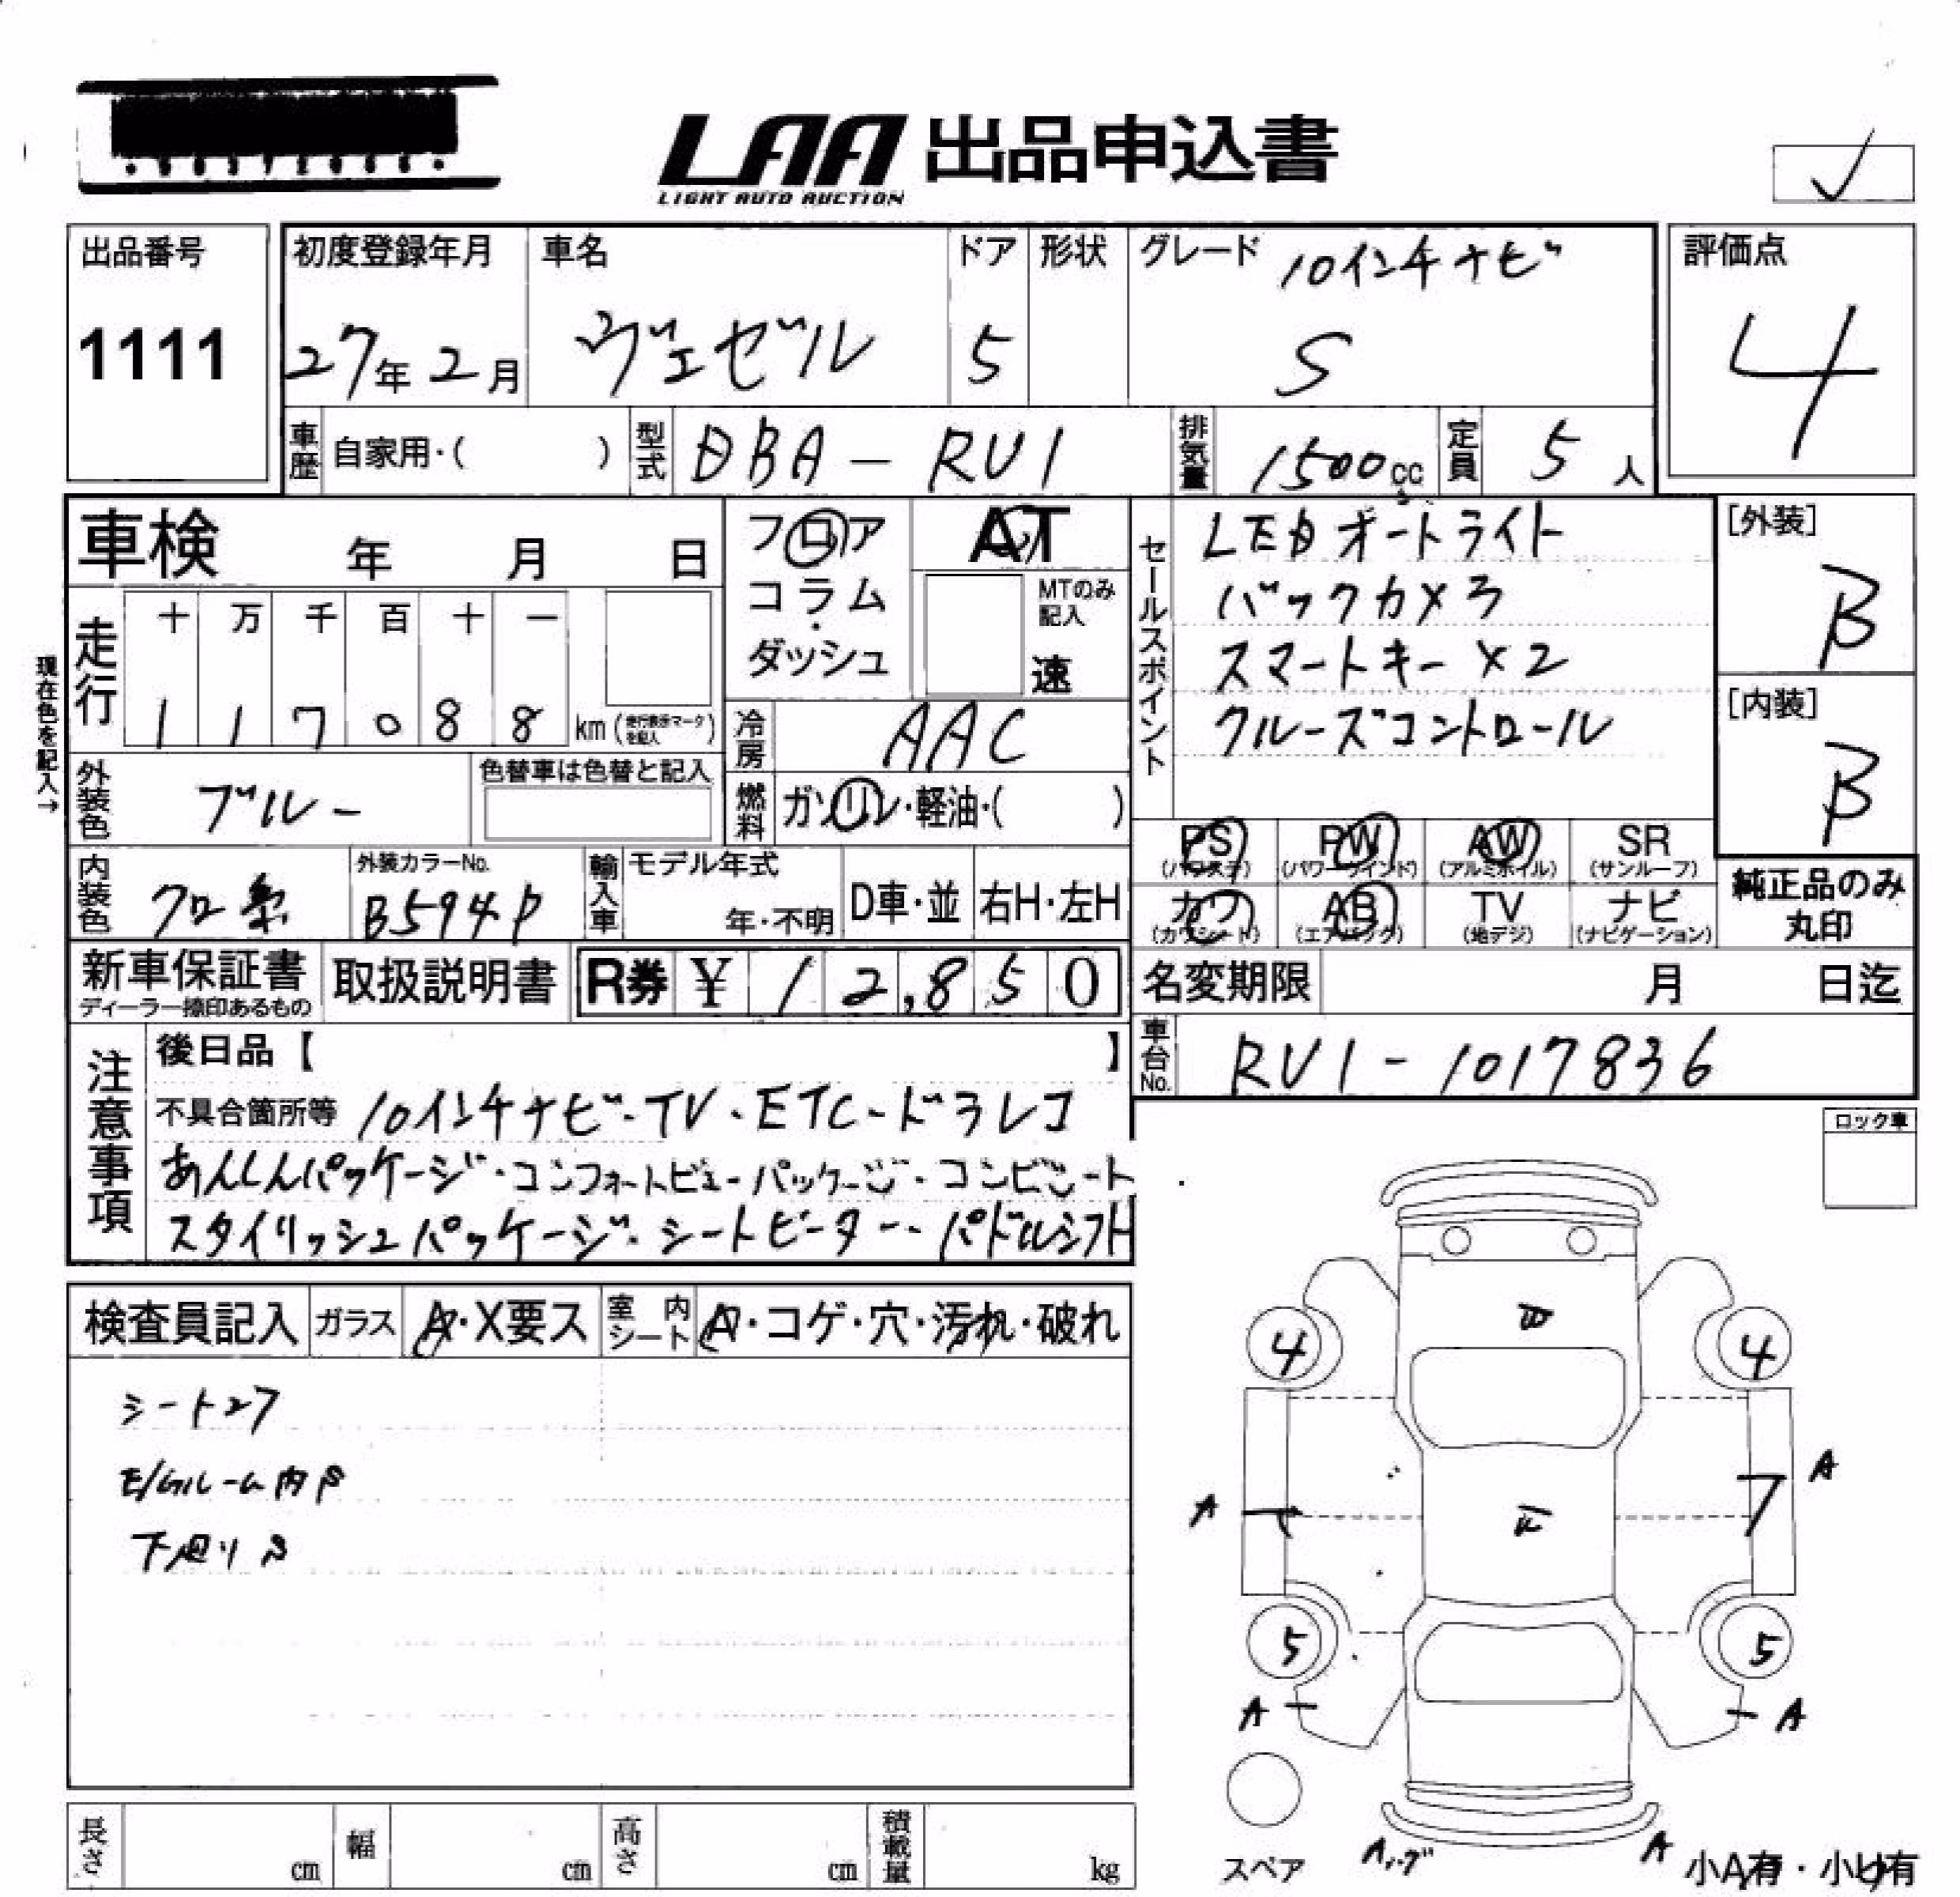 LAA 出品申込書
LIGHT AUTO AUCTION
出品番号
1111
初度登録年月
27年2月
車名
ヴェゼル
ドア
5
形状
グレード 10インチナビ
S
評価点
4
車歴 自家用・( )
型式 DBA-RU1
排気量 1500cc
定員 5人
車検 年 月 日
フロア
コラム・
ダッシュ
AT
MTのみ
記入
速
セールスポイント
LEDオートライト
バックカメラ
スマートキー×2
クルーズコントロール
[外装]
B
[内装]
B
現在色を記入→
走行 十 万 千 百 十 一
1 1 7 0 8 8 km (走行表示マークを記入)
冷房 AAC
外装色 ブルー
色替車は色替と記入
燃料 ガソリン・軽油・( )
PS (パワステ) PW (パワーウインド) AW (アルミホイル) SR (サンルーフ)
カワ (カワシート) AB (エアバック) TV (地デジ) ナビ (ナビゲーション)
純正品のみ
丸印
内装色 クロ系
外装カラーNo.
B594P
輸入車 モデル年式
年・不明
D車・並 右H・左H
新車保証書
ディーラー捺印あるもの
取扱説明書
R券 ¥ 12,850
名変期限 月 日迄
車台No. RU1-1017836
注意事項
後日品【 】
不具合箇所等 10インチナビ・TV・ETC・ドラレコ
あんしんパッケージ・コンフォートビューパッケージ・コンビシート
スタイリッシュパッケージ・シートヒーター・パドルシフト
ロック車
検査員記入 ガラス A・X要ス 室内シート A・コゲ・穴・汚れ・破れ
シートスワ
E/Gルーム内S
下廻りS
4 4
A A
5 5
A A
スペア
A
小A有・小U有
長さ cm 幅 cm 高さ cm 積載量 kg